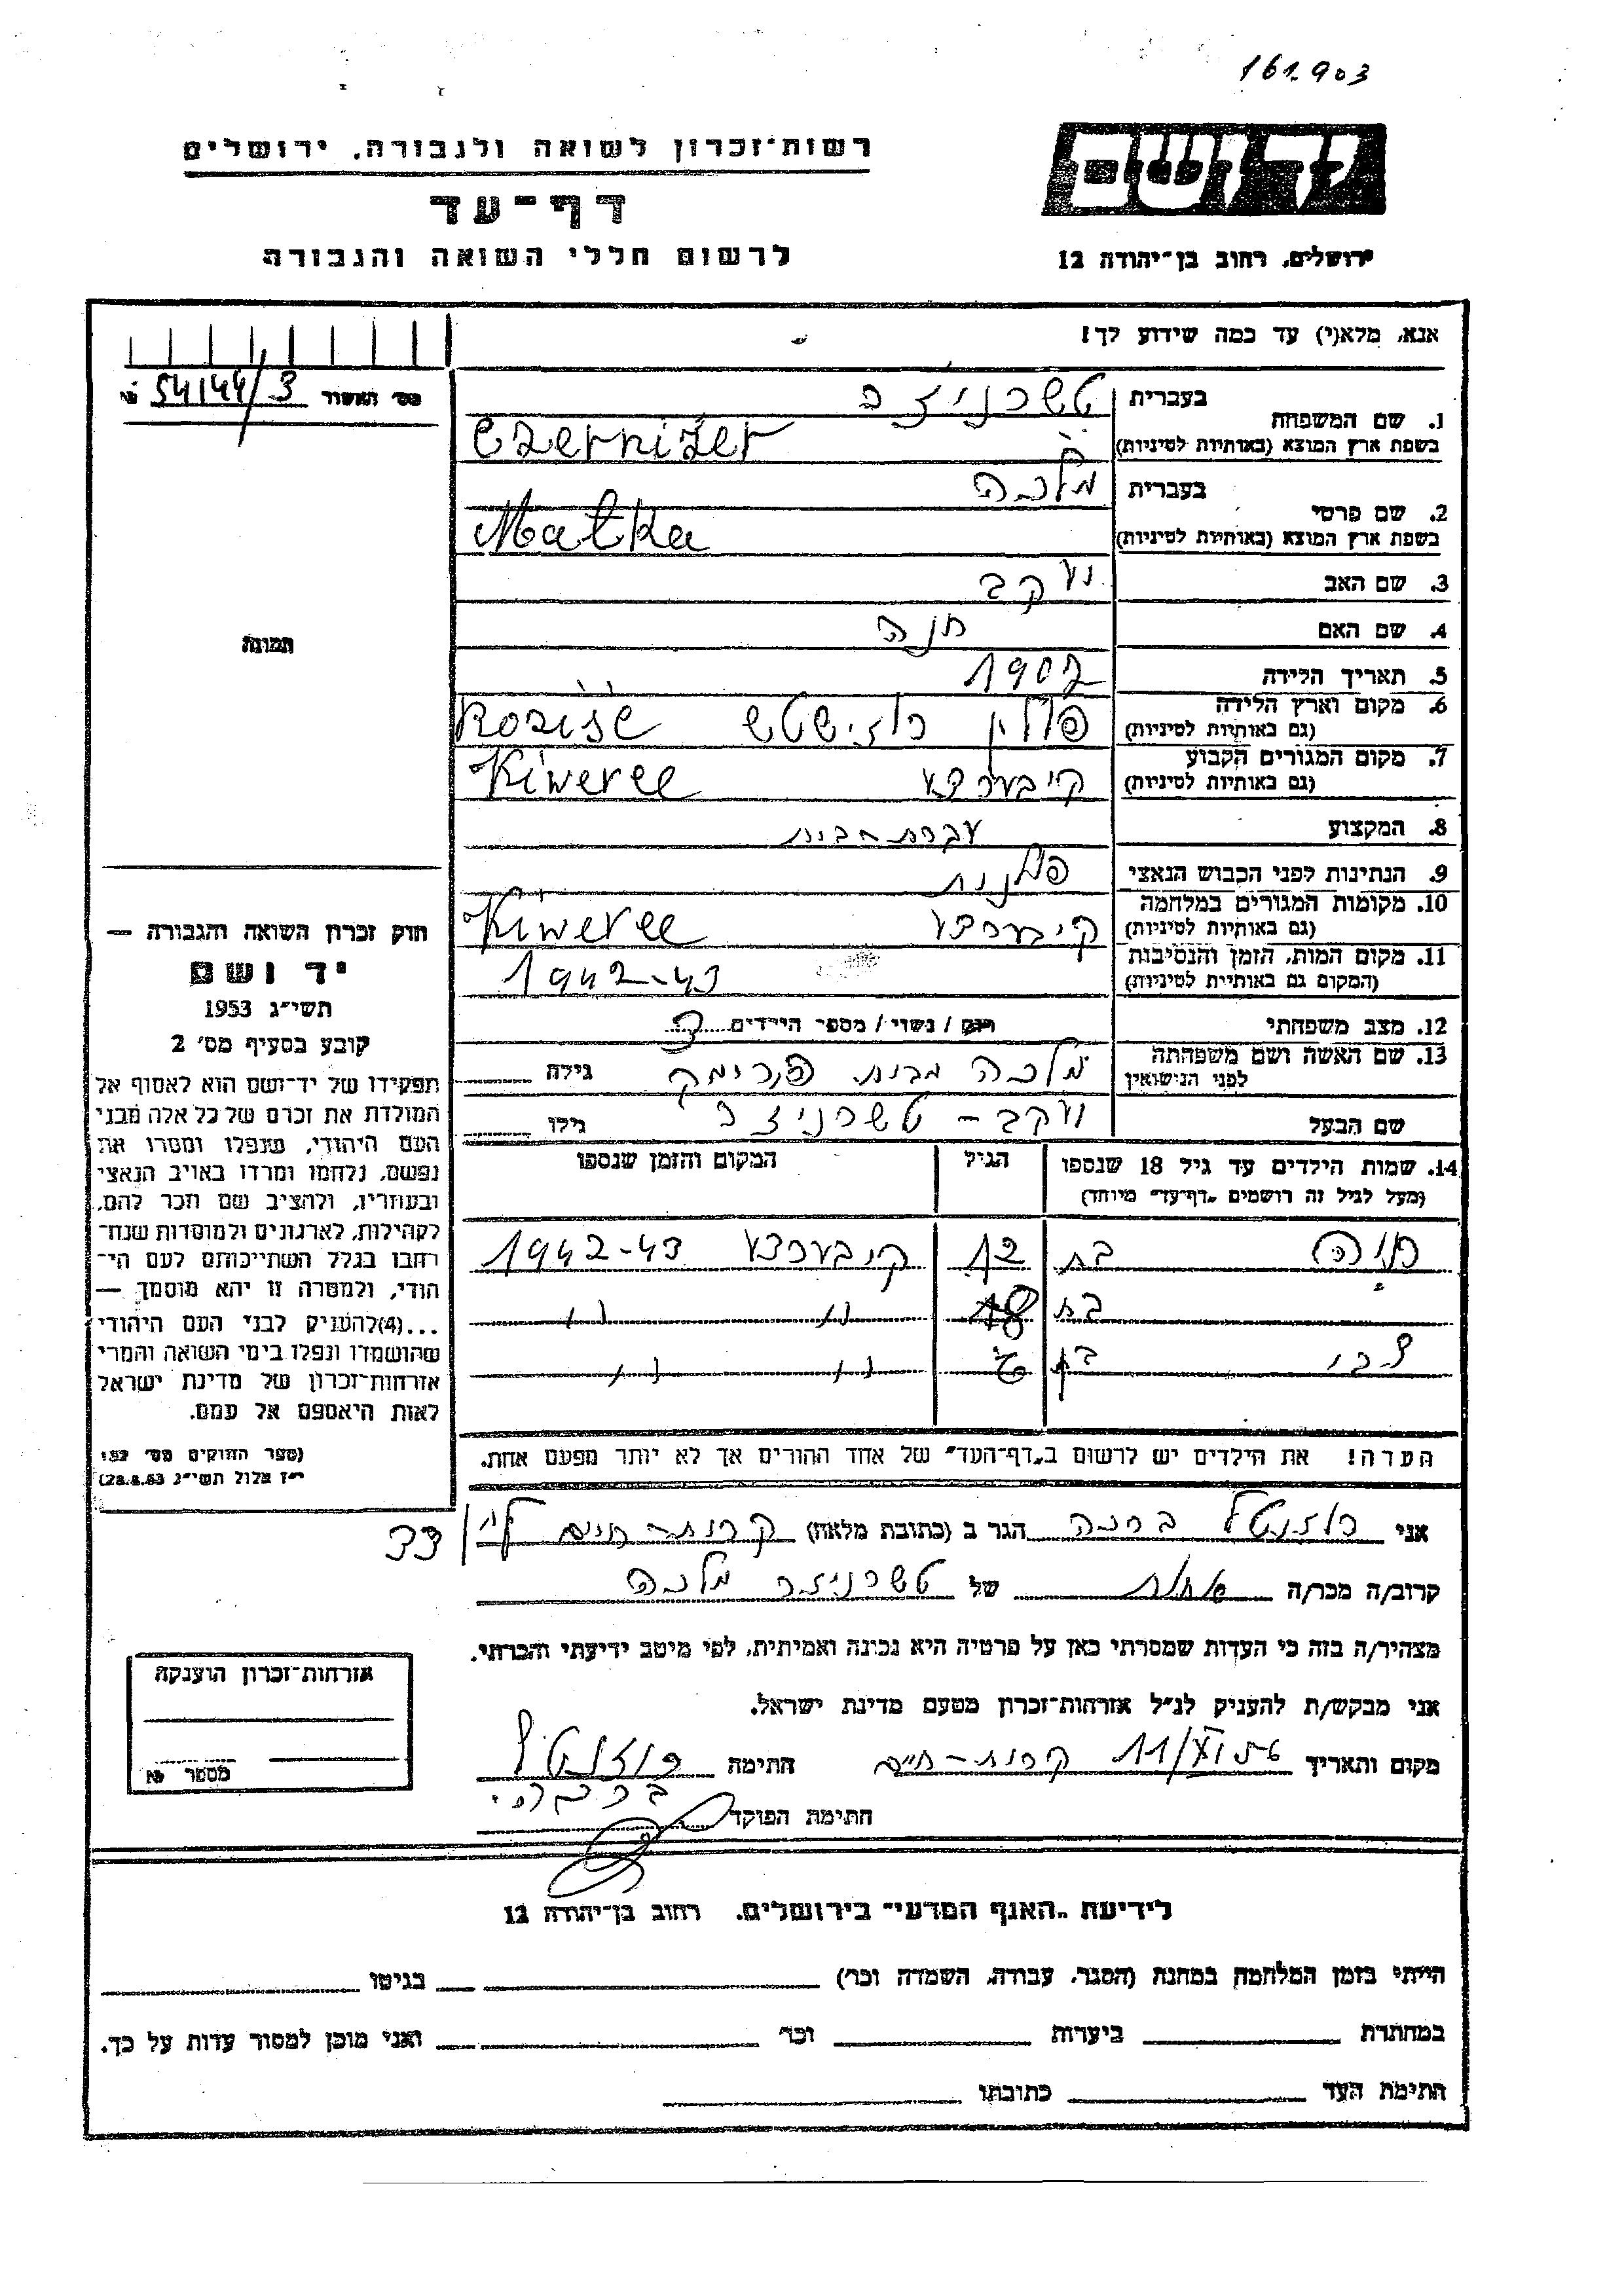 161903
רשות־זכרון לשואה ולגבורה, ירושלים
ידושם
דף־עד
לרשום חללי השואה והגבורה
ירושלים, רחוב בן־יהודה 12
אנא, מלא(י) עד כמה שידוע לך!
מס׳ האשור № 54144/3
1. שם המשפחה
בעברית טשרניזר
בשפת ארץ המוצא (באותיות לטיניות) Czernizer
2. שם פרטי
בעברית מלכה
בשפת ארץ המוצא (באותיות לטיניות) Malka
3. שם האב יעקב
4. שם האם חנה
5. תאריך הלידה 1902
6. מקום וארץ הלידה
(גם באותיות לטיניות) פולין רוזישטש
7. מקום המגורים הקבוע
(גם באותיות לטיניות) קיברצע Kiweree
8. המקצוע עקרת הבית
9. הנתינות לפני הכבוש הנאצי פולנית
10. מקומות המגורים במלחמה
(גם באותיות לטיניות) קיברצע Kiweree
11. מקום המות, הזמן והנסיבות
(המקום גם באותיות לטיניות) 1942-43
12. מצב משפחתי רוק / נשוי / מספר הילדים 3
13. שם האשה ושם משפחתה
לפני הנישואין מלכה מבית גילה
שם הבעל יעקב - טשרניזר גילו
14. שמות הילדים עד גיל 18 שנספו הגיל המקום והזמן שנספו
(מעל לגיל זה רושמים „דף־עד״ מיוחד)
בת 12 קיברצע 1942-43
בת 18 ״ ״
צבי בן 6 ״ ״
הערה! את הילדים יש לרשום ב„דף־העד״ של אחד ההורים אך לא יותר מפעם אחת.
תמונה
חוק זכרון השואה והגבורה —
יד ושם
תשי״ג 1953
קובע בסעיף מס׳ 2
תפקידו של יד־ושם הוא לאסוף אל
המולדת את זכרם של כל אלה מבני
העם היהודי, שנפלו ומסרו את
נפשם, נלחמו ומרדו באויב הנאצי
ובעוזריו, ולהציב שם וזכר להם,
לקהילות, לארגונים ולמוסדות שנח־
רבו בגלל השתייכותם לעם הי־
הודי, ולמטרה זו יהא מוסמך —
...(4)להעניק לבני העם היהודי
שהושמדו ונפלו בימי השואה והמרי
אזרחות־זכרון של מדינת ישראל
לאות היאספם אל עמם.
(ספר החוקים מס׳ 132
י״ז אלול תשי״ג 28.8.53)
אני רוזנטל ברכה הגר ב (כתובת מלאה) קרית-חיים
קרוב/ה מכר/ה אחות של טשרניזר מלכה
מצהיר/ה בזה כי העדות שמסרתי כאן על פרטיה היא נכונה ואמיתית, לפי מיטב ידיעתי והכרתי.
אני מבקש/ת להעניק לנ״ל אזרחות־זכרון מטעם מדינת ישראל.
מקום ותאריך קרית-חיים 11/XI 956 חתימה רוזנטל
ברכה
חתימת הפוקד
אזרחות־זכרון הוענקה
מספר №
לידיעת „האגף המדעי״ בירושלים, רחוב בן־יהודה 12
הייתי בזמן המלחמה במחנה (הסגר, עבודה, השמדה וכו׳) בגיטו
במחתרת ביערות וכו׳ ואני מוכן למסור עדות על כך.
חתימת העד כתובתו